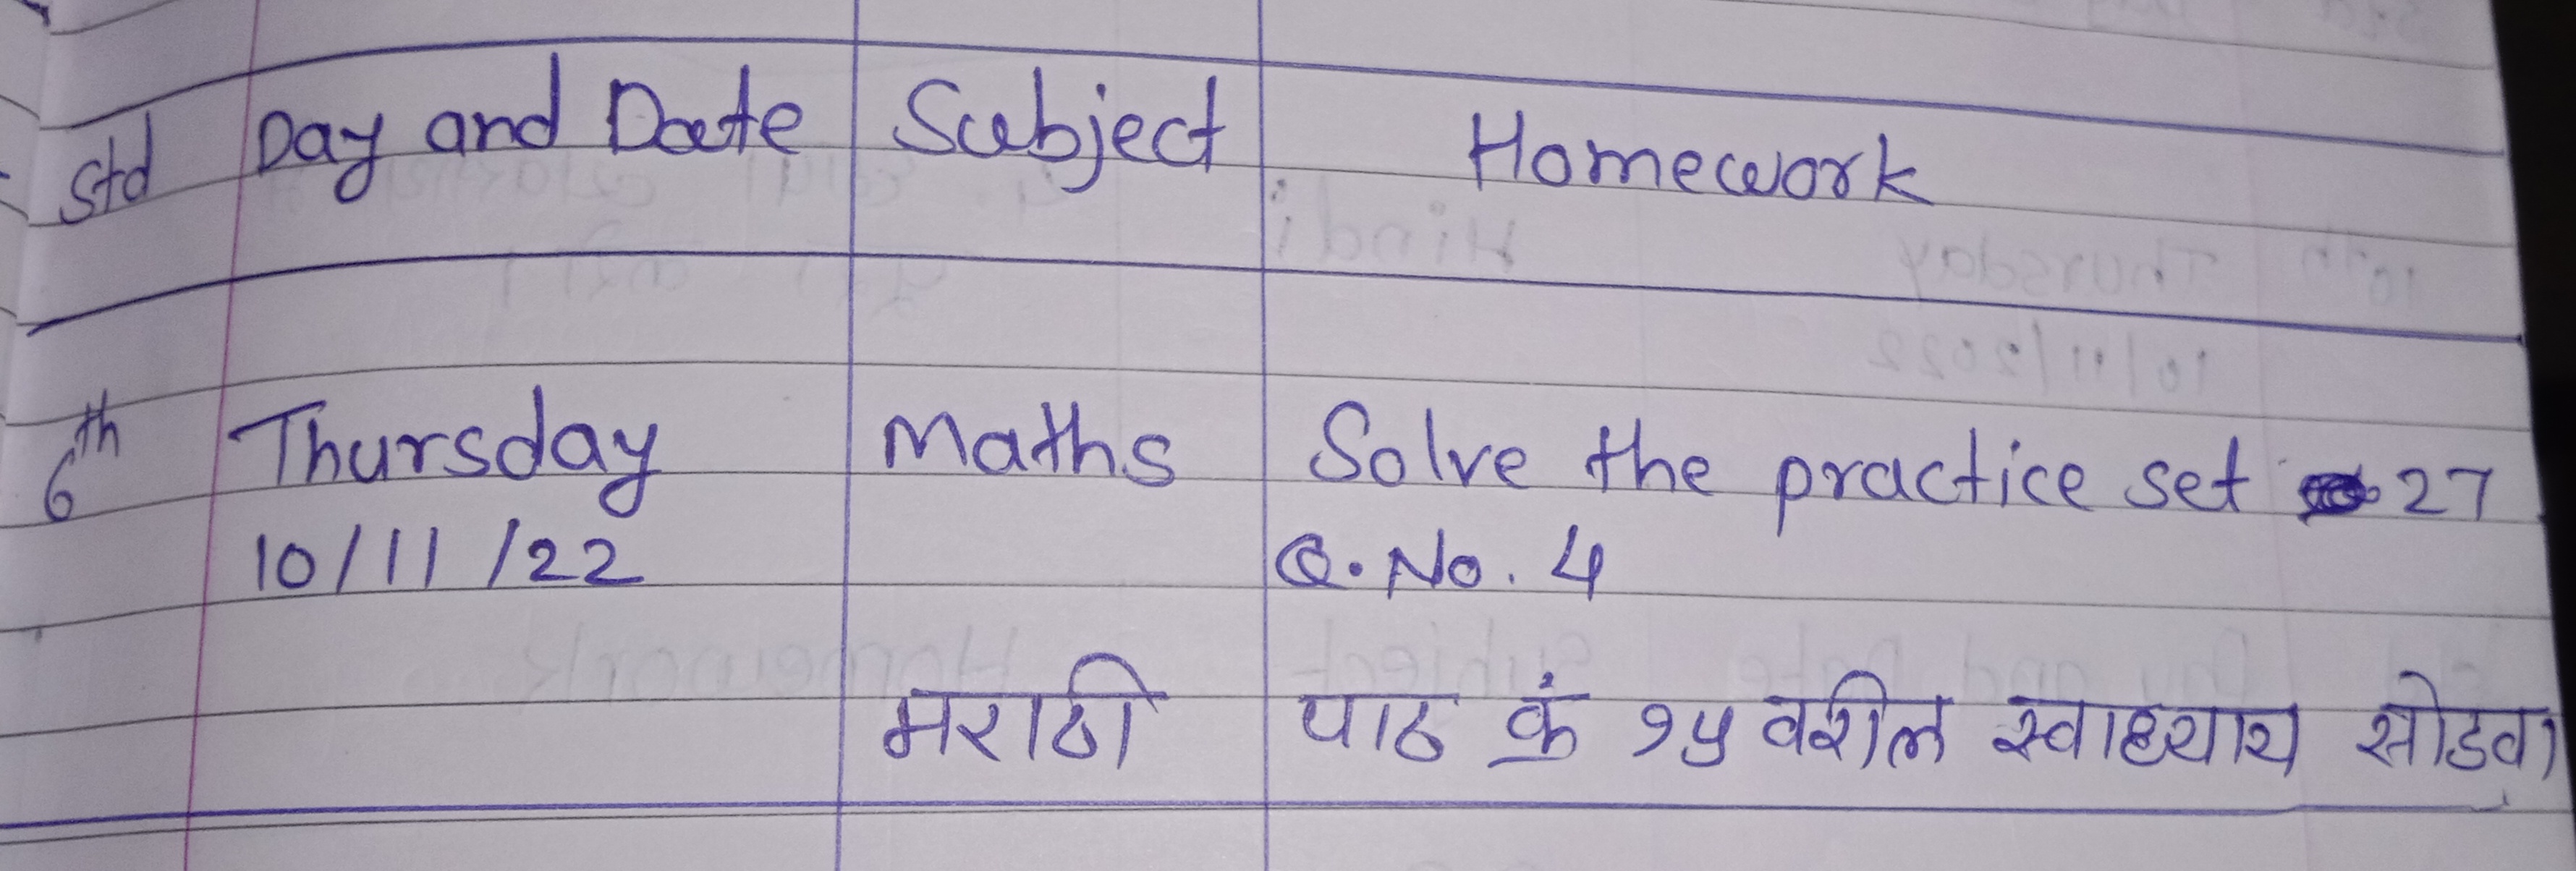 Std Day and Date Subject Homework
6th Thursday Maths Solve the practice set 27
10/11/22 Q. No. 4
मराठी पाठ क्रं १५ वरील स्वाध्याय सोडवा